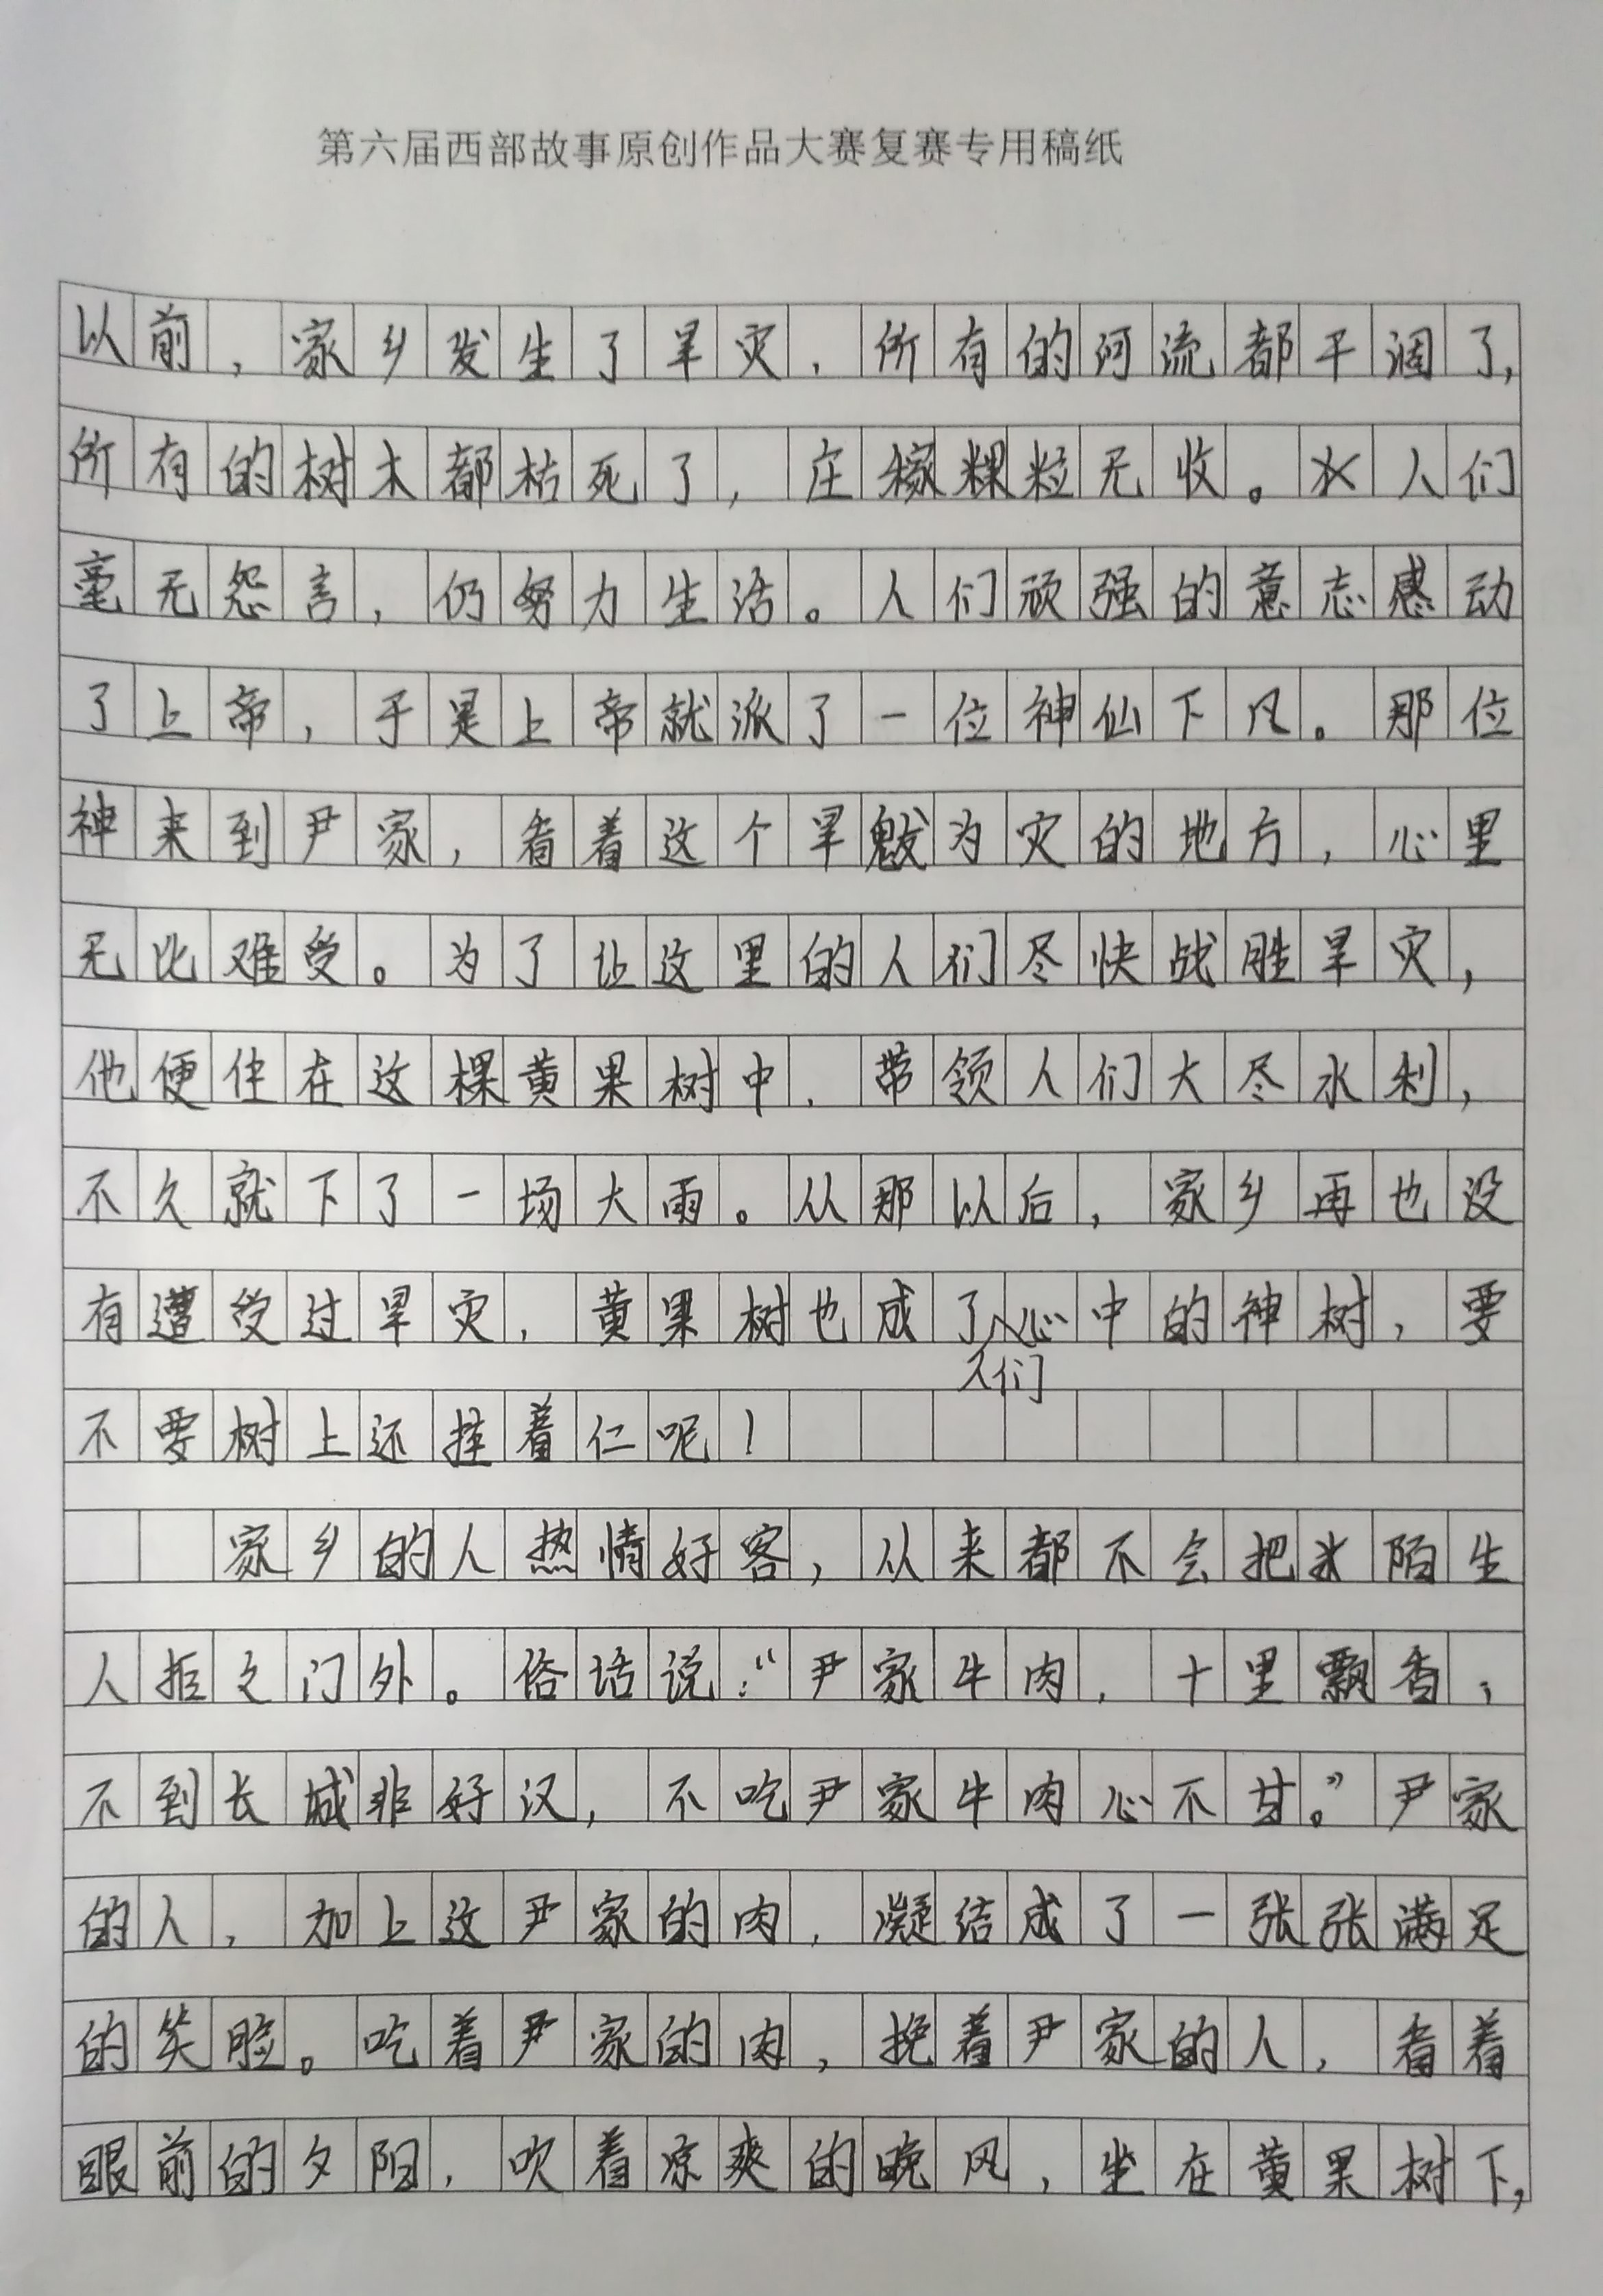 第六届西部故事原创作品大赛复赛专用稿纸
以前，家乡发生了旱灾，所有的河流都干涸了，
所有的树木都枯死了，庄稼粿粒无收。人们
毫无怨言，仍努力生活。人们顽强的意志感动
了上帝，于是上帝就派了一位神仙下凡。那位
神来到尹家，看着这个旱魃为灾的地方，心里
无比难受。为了让这里的人们尽快战胜旱灾，
他便住在这棵黄果树中，带领人们大尽水利，
不久就下了一场大雨。从那以后，家乡再也没
有遭受过旱灾，黄果树也成了人们心中的神树，要
不要树上还挂着仁呢！
家乡的人热情好客，从来都不会把陌生
人拒之门外。俗话说：“尹家牛肉，十里飘香；
不到长城非好汉，不吃尹家牛肉心不甘。”尹家
的人，加上这尹家的肉，凝结成了一张张满足
的笑脸。吃着尹家的肉，挽着尹家的人，看着
眼前的夕阳，吹着凉爽的晚风，坐在黄果树下，